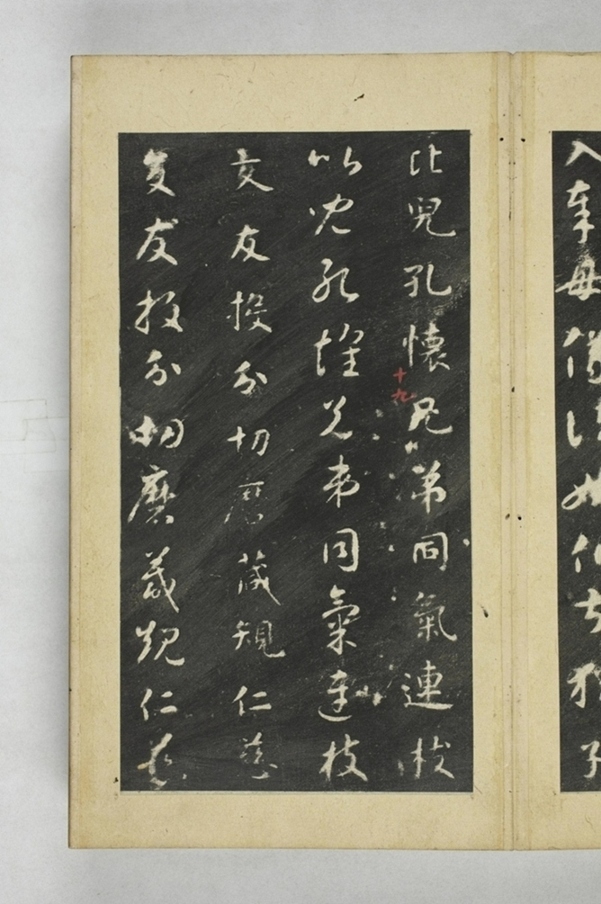 入奉母儀諸姑伯叔猶子
比兒孔懷兄弟同氣連枝
比兒孔懷兄弟同氣連枝
交友投分切磨箴規仁慈
交友投分切磨箴規仁慈
十九